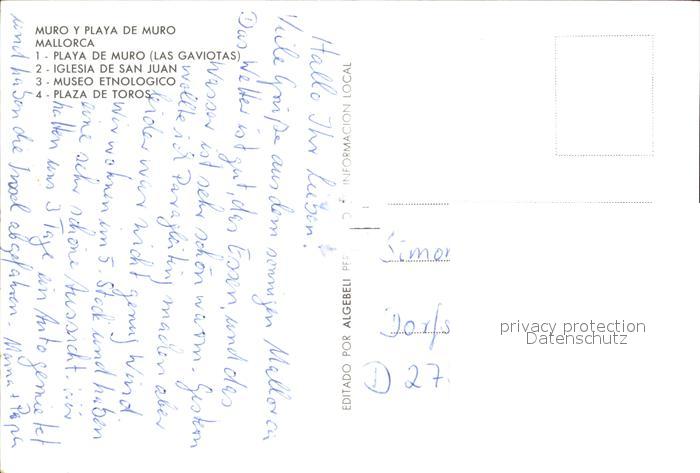 MURO Y PLAYA DE MURO
MALLORCA
1 - PLAYA DE MURO (LAS GAVIOTAS)
2 - IGLESIA DE SAN JUAN
3 - MUSEO ETNOLOGICO
4 - PLAZA DE TOROS
Hallo Ihr Lieben!
Viele Grüße aus dem sonnigen Mallorca
Das Wetter ist gut, das Essen, und das
Wasser ist sehr schön warm. Gestern
wollte ich Paragleiting machen aber
leider war nicht genug Wind
Wir wohnen im 5. Stock und haben
eine sehr schöne Aussicht. Wir
hatten uns 3 Tage ein Auto gemietet
und haben die Insel abgefahren. Mama + Papa
EDITADO POR ALGEBELI
INFORMACION LOCAL
Simon
Dorfs
D 27
privacy protection
Datenschutz